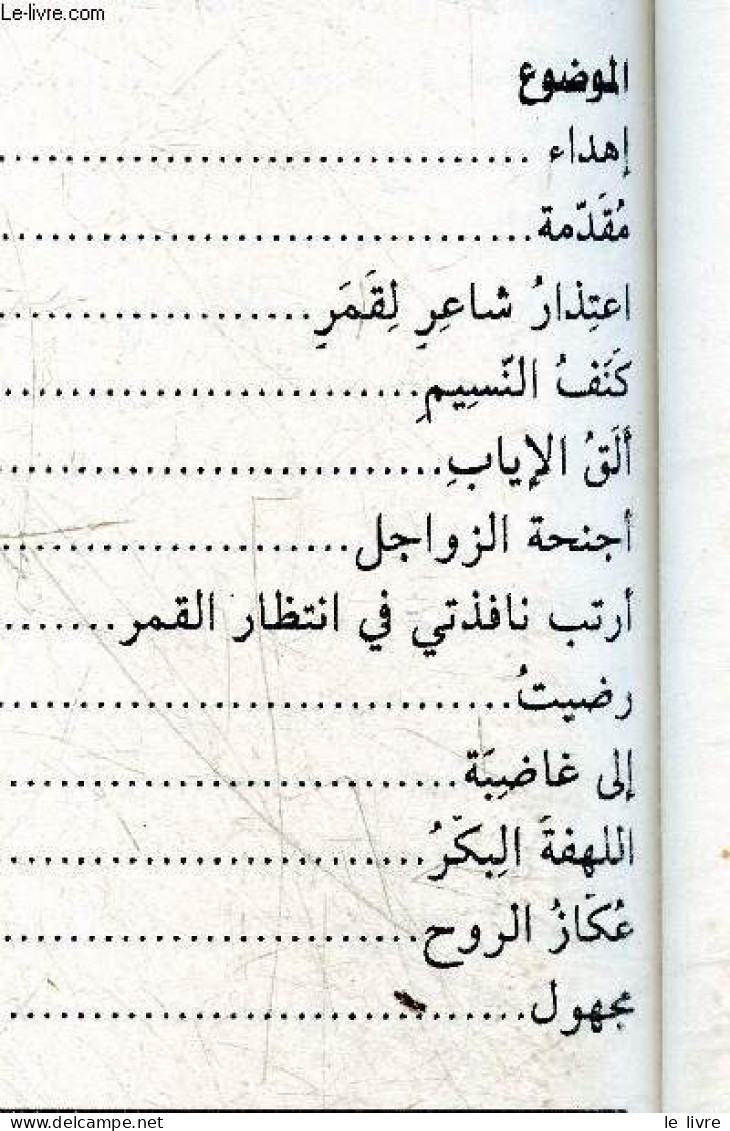 Le-livre.com
الموضوع
إهداء ................................
مُقَدّمة................................
اعتِذارُ شاعِرٍ لِقَمَرٍ...................
كَنَفُ النّسِيمِ..........................
أَلَقُ الإيابِ...........................
أجنحة الزواجل.....................
أرتب نافذتي في انتظار القمر.......
رضيتُ...............................
إلى غاضِبَة...........................
اللهفةَ البِكْرُ..........................
عُكّازُ الروح..........................
مجهول...............................
www.delcampe.net
le livre